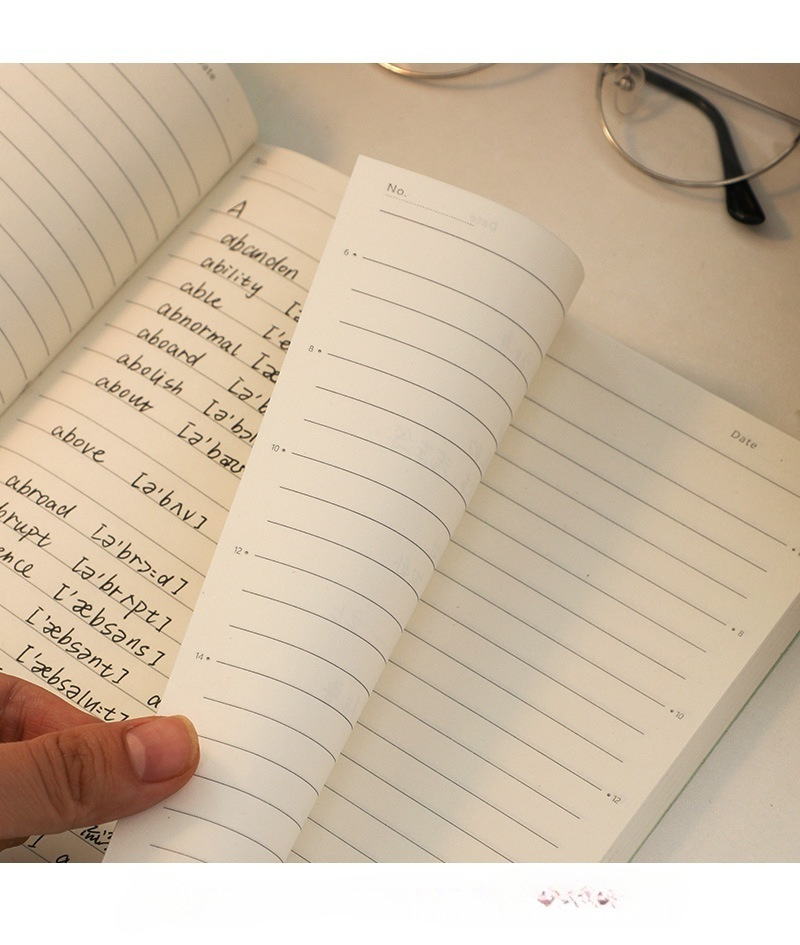 A
abandon
ability [
able ['e
abnormal [æ
aboard [ə'b
abolish [ə'bɔl
about [ə'baʊ
above [ə'bʌv]
abroad [ə'brɔ:d]
brupt [ə'brʌpt]
ence ['æbsəns]
['æbsənt] a
['æbsəlu:t]
No.
6
8
10
12
14
Date
8
10
12